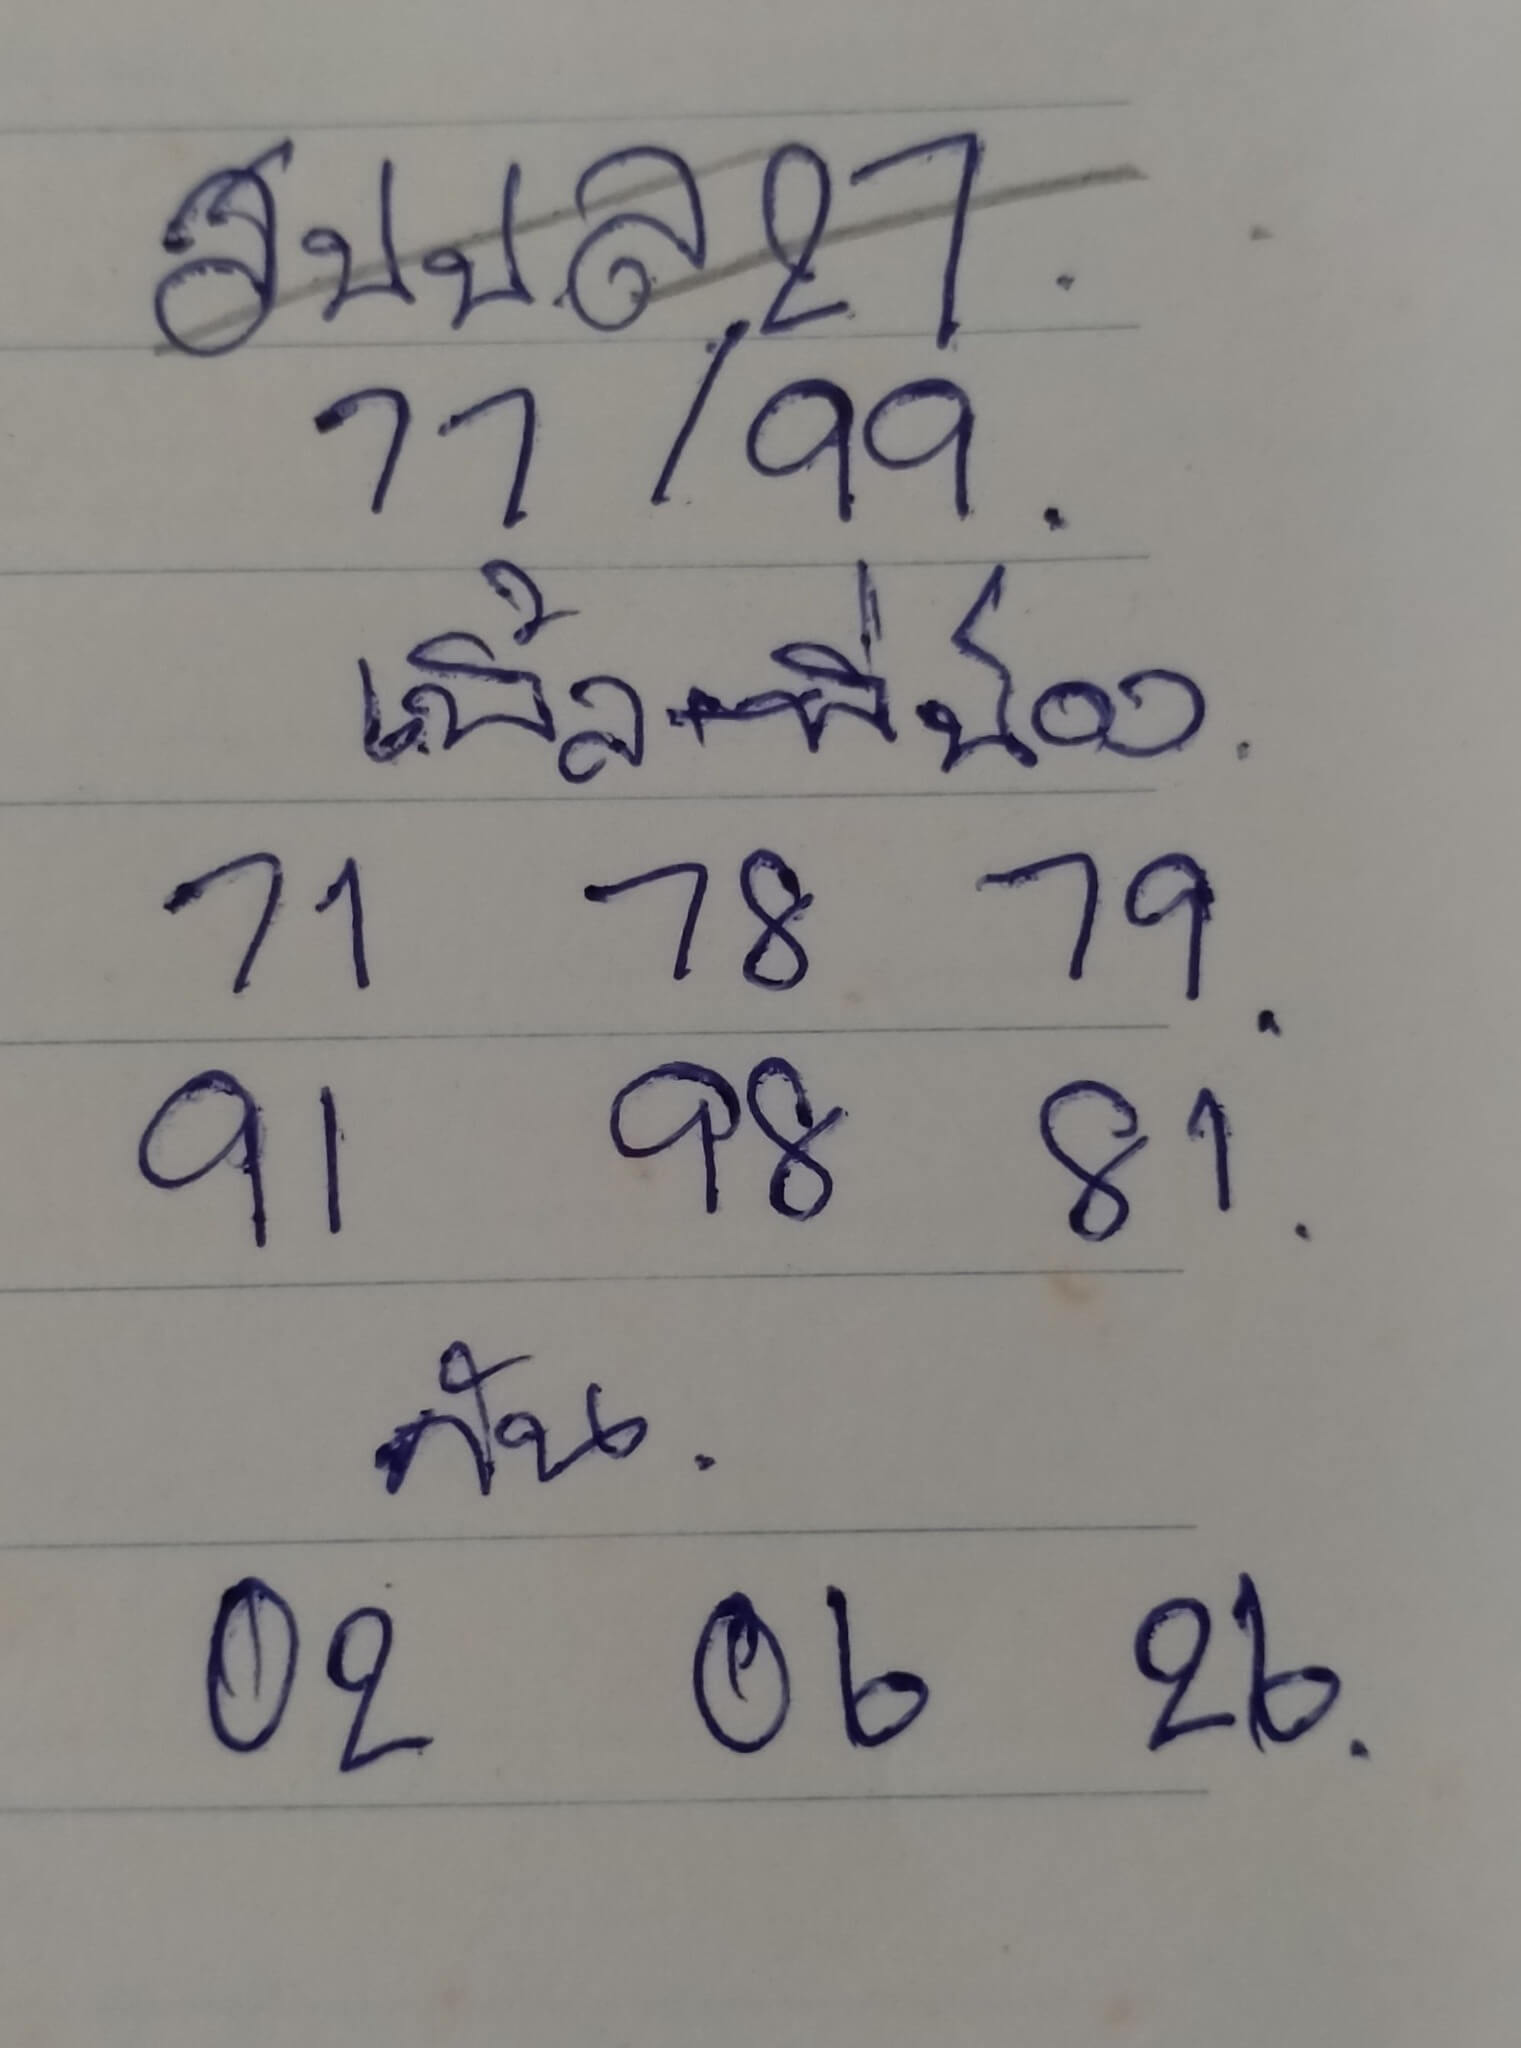 ฮปปล 27.
77 / 99.
เบิ้ล + พี่น้อง.
71 78 79.
91 98 81.
กัน.
02 06 26.